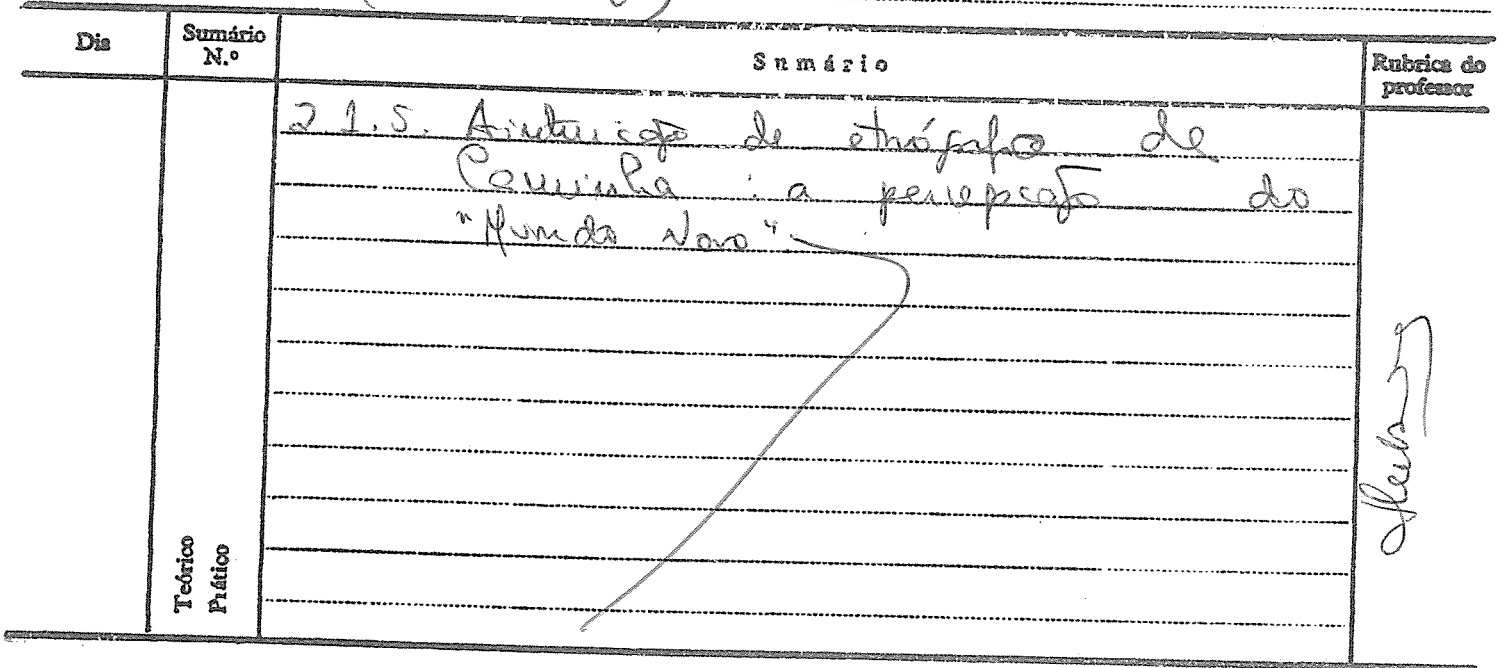 Dia
Sumário N.º
Sumário
Rubrica do professor
2.1.5. A intuição de etnógrafo de
Caminha : a percepção do
"Mundo Novo"
Teórico
Prático